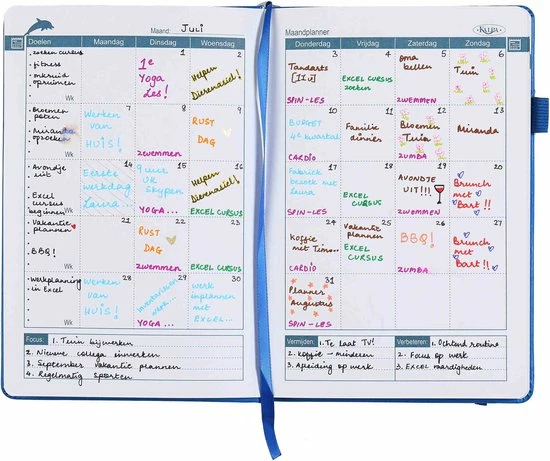 Maand: Juli
Doelen Maandag Dinsdag Woensdag
. zoeken cursus
. fitness
. mkruid
opruimen
Wk
1
1e
Yoga
Les!
2
Helpen
Dierenasiel!
. Bloemen
poten
. Miranda
opzoeken
Wk
7
Werken
van
HUIS!
8
zwemmen
9
RUST
DAG
. Avondje
uit
. Excel
cursus
beginnen
Wk
14
Eerste
werkdag
Laura...
15
9 uur
UK
Skypen
YOGA...
16
Helpen
Dierenasiel!
EXCEL CURSUS
. Vakantie
plannen
. BBQ!
Wk
21
22
RUST
DAG
zwemmen
23
EXCEL CURSUS
. Werkplanning
in Excel
Wk
28
Werken
van
HUIS!
29
YOGA...
30
werk
inplannen
met
EXCEL...
Focus: 1. Tuin bijwerken
2. Nieuwe collega inwerken
3. September vakantie plannen
4. Regelmatig Sporten
Maandplanner
KALPA
Donderdag Vrijdag Zaterdag Zondag
3
Tandarts
[11u]
SPIN-LES
4
EXCEL CURSUS
zoeken
5
Oma
bellen
zwemmen
6
Tuin
10
BUDGET
4e kwartaal
CARDIO
11
Familie
dinner
12
Bloemen
Tuin
ZUMBA
13
Miranda
17
Fabriek
bezoek met
Laura
SPIN-LES
18
EXCEL
CURSUS
19
AVONDJE
UIT!!!
zwemmen
20
Brunch
met
Bart !!
24
Koffie
met Timo...
CARDIO
25
Vakantie
plannen
EXCEL
CURSUS
26
BBQ!
ZUMBA
27
Brunch
met
Bart !!
31
Planner
Augustus
SPIN-LES
Vermijden: 1. Te laat TV!
2. Koffie - minderen
3. Afleiding op werk
Verbeteren: 1. Ochtend routine
2. Focus op werk
3. EXCEL vaardigheden